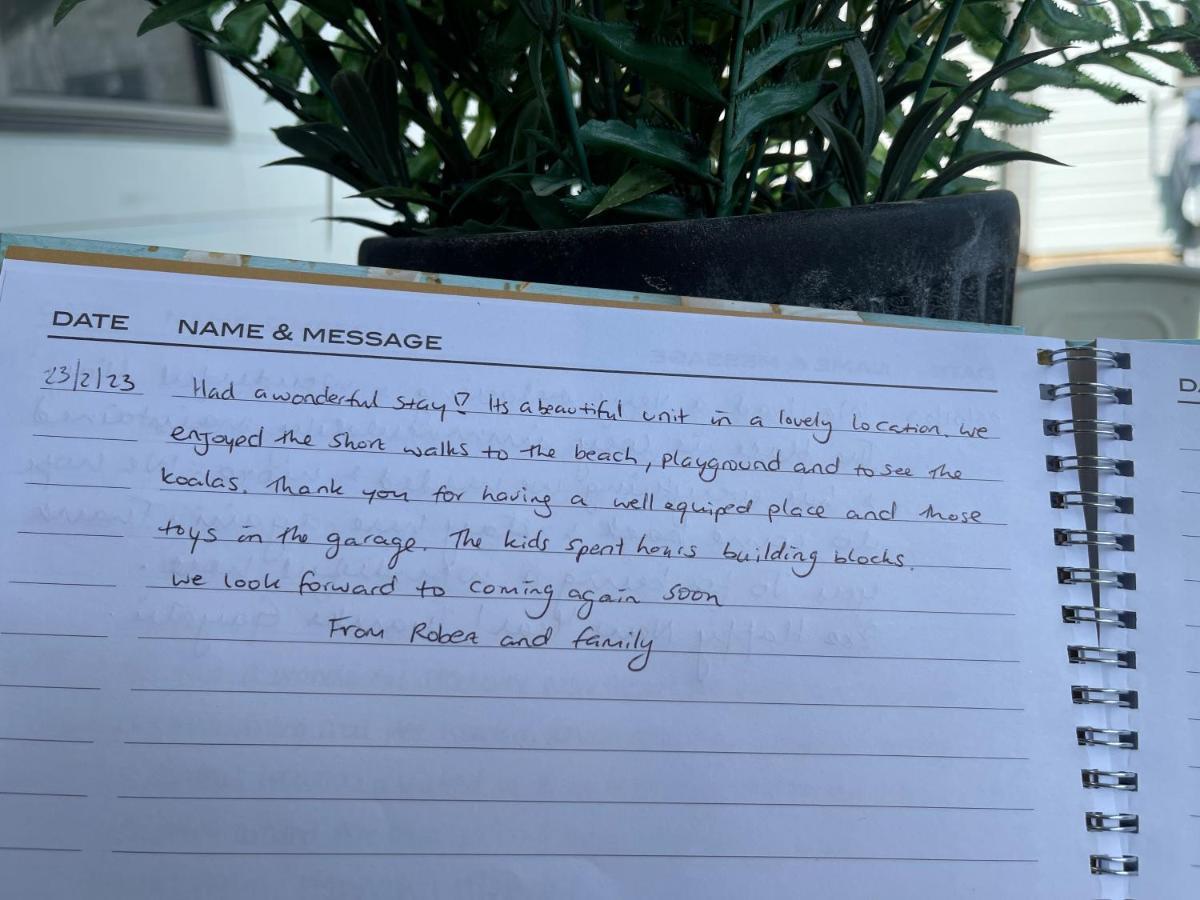 DATE NAME & MESSAGE
23/2/23 Had a wonderful stay! Its a beautiful unit in a lovely location. We
enjoyed the short walks to the beach, playground and to see the
koalas. Thank you for having a well equiped place and those
toys in the garage. The kids spent hours building blocks.
We look forward to coming again soon
From Robert and family
D